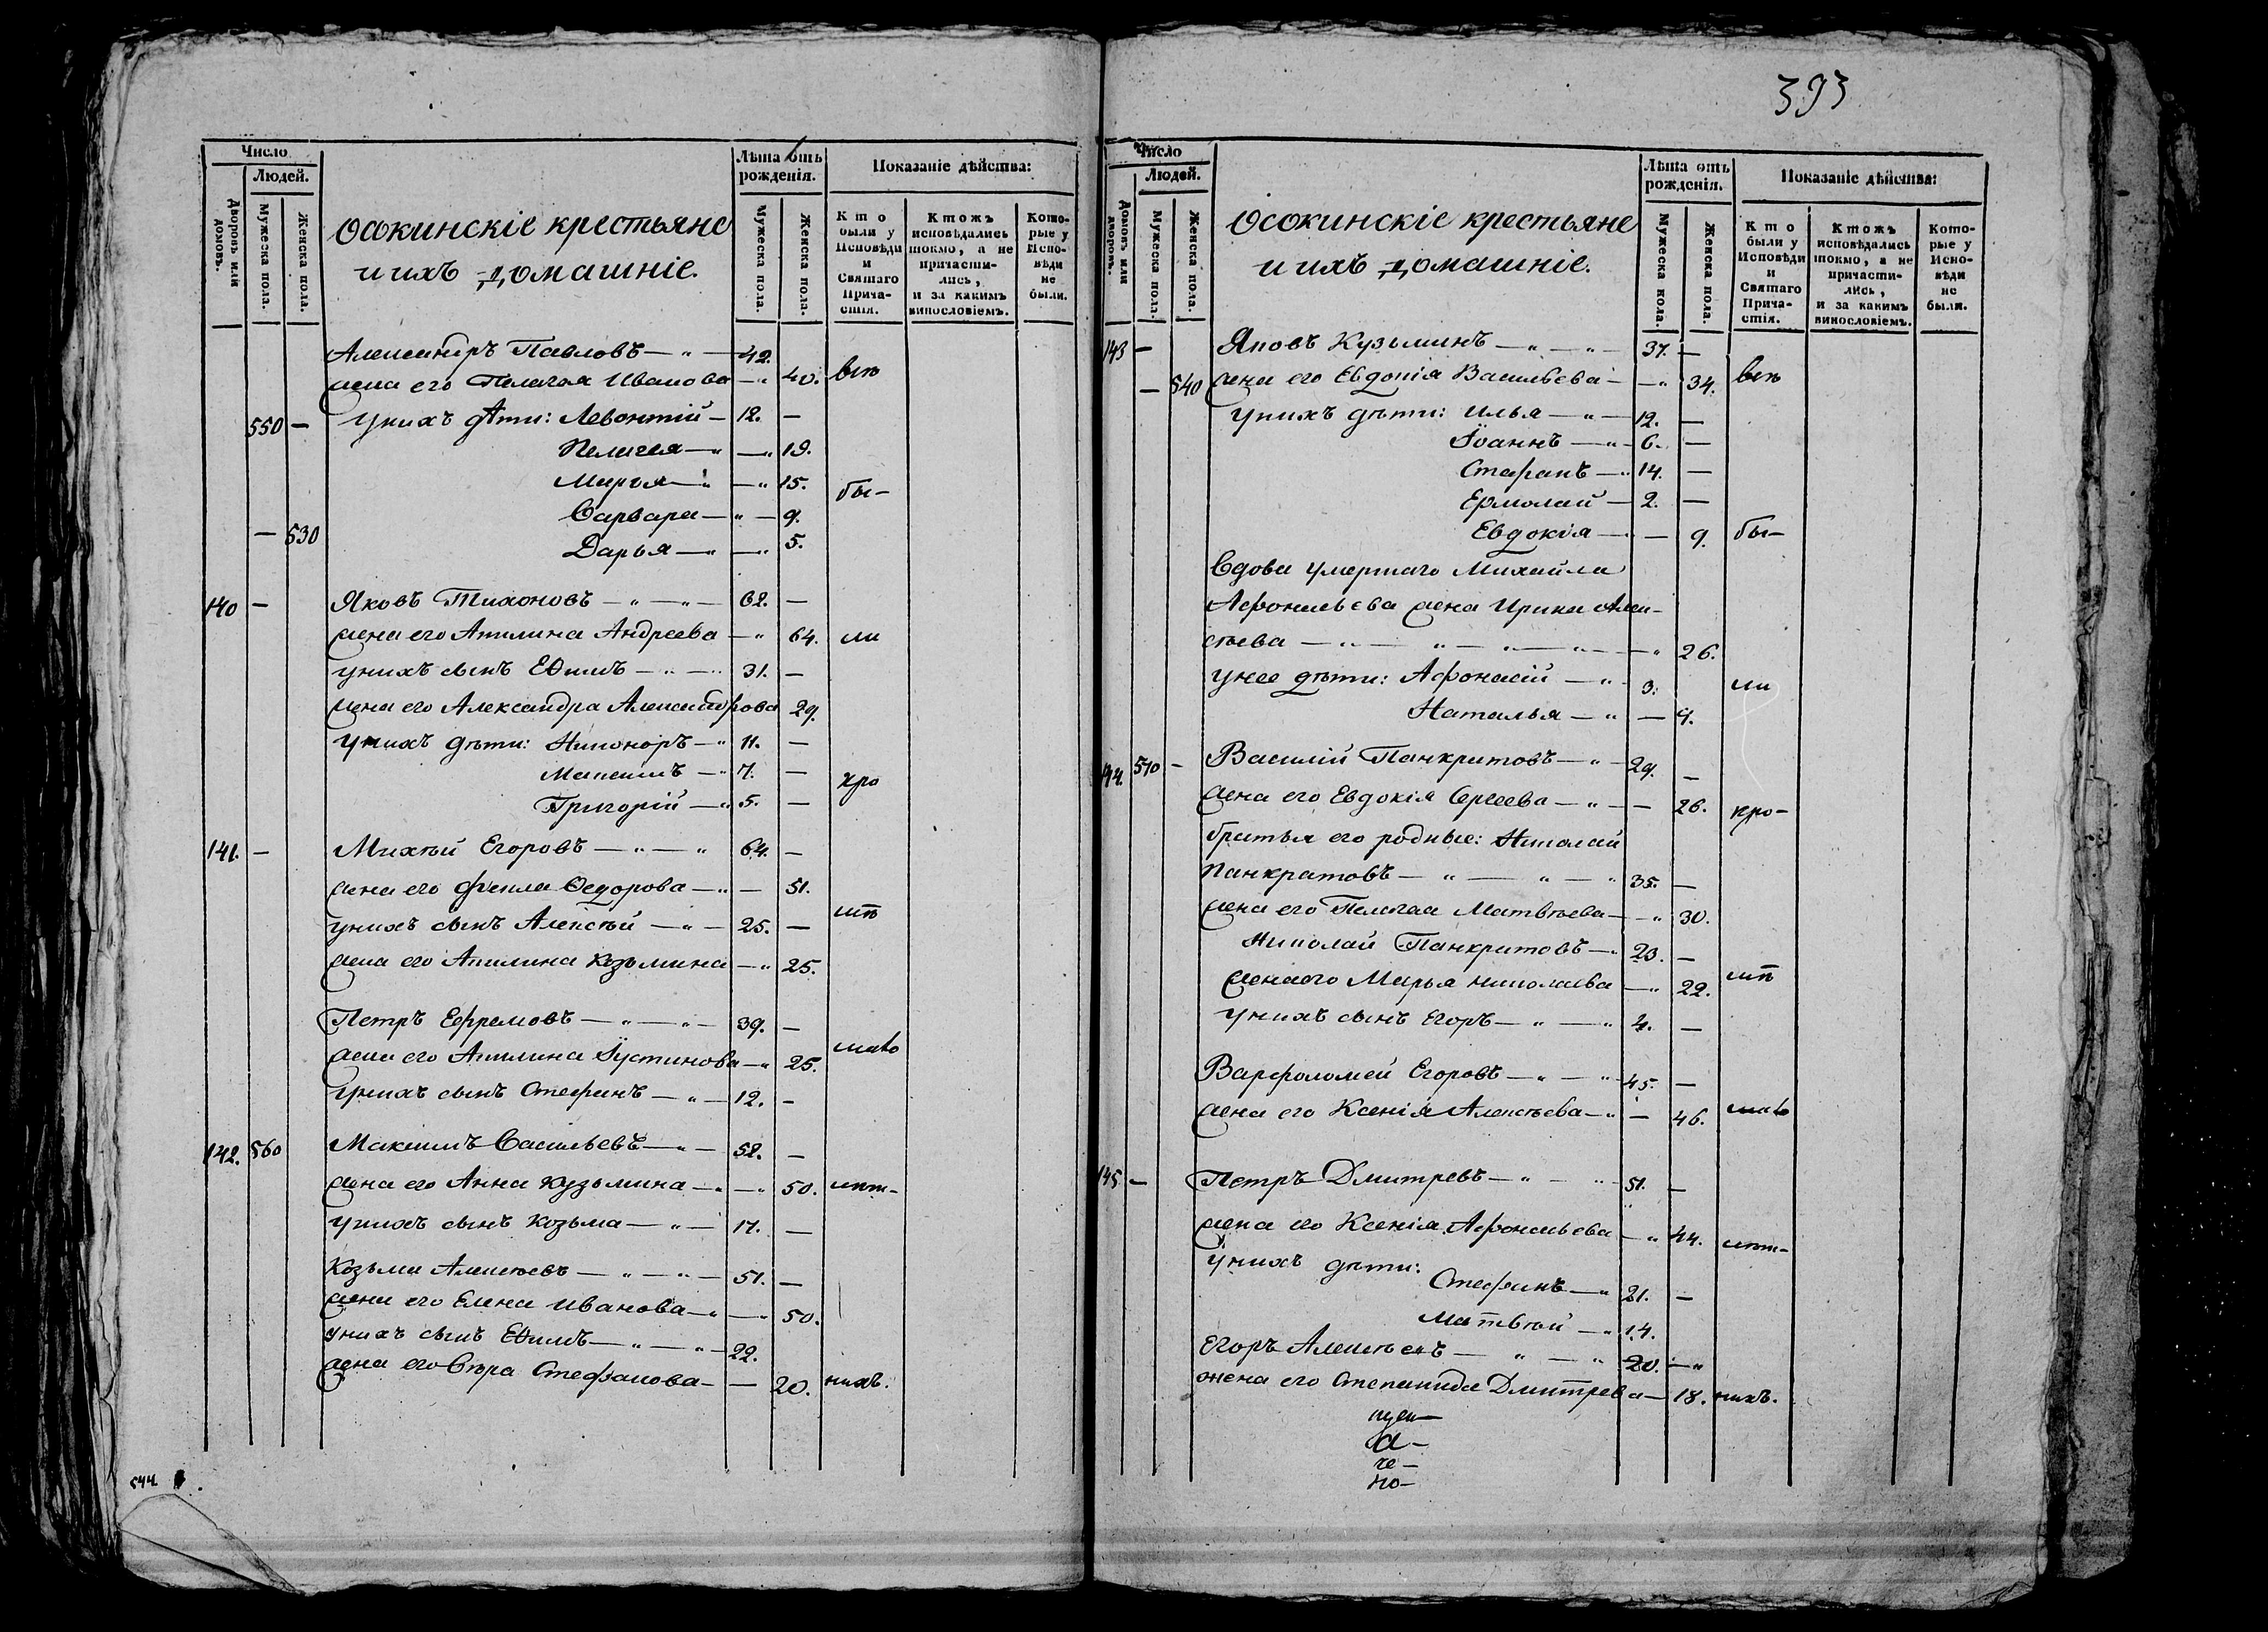 393
Число
Людей.
Дворовъ или домовъ.
Мужеска пола.
Женска пола.
Осокинскіе крестьяне
и ихъ домашніе.
Лѣта отъ рожденія.
Мужеска пола.
Женска пола.
Показаніе дѣйства:
Кто были у Исповѣди и Святаго Прича-стія.
Ктожъ исповѣдались токмо, а не причасти-лись, и за какимъ винословіемъ.
Кото-рые у Испо-вѣди не были.
Александръ Павловъ — 42.
жена его Пелагея Иванова — 40. всѣ
550 — у нихъ дѣти: Левонтій — 12. —
Пелагея — 19.
Марья — 15. бы-
Варвара — 9.
— 530 Дарья — 5.
140 — Яковъ Тихоновъ — 62. —
жена его Акилина Андреева — 64. ли
у нихъ сынъ Еѳимъ — 31. —
жена его Александра Александрова 29.
у нихъ дѣти: Никоноръ — 11. —
Максимъ — 7. —
Григорій — 5. — кро
141. — Михѣй Егоровъ — 64. —
жена его Ѳекла Ѳедорова — 51.
у нихъ сынъ Алексѣй — 25. — мѣ
жена его Акилина Козьмина — 25.
Петръ Ефремовъ — 39. —
жена его Акилина Іустинова — 25. мало
у нихъ сынъ Стефанъ — 12. —
142. 560 Максимъ Васильевъ — 52. —
жена его Анна Кузьмина — 50. лѣт-
у нихъ сынъ Козьма — 17. —
Козьма Алексѣевъ — 51. —
жена его Елена Иванова — 50.
у нихъ сынъ Еѳимъ — 22.
жена его Вѣра Стефанова — 20. нихъ.
544.
Число
Людей.
Домовъ или дворовъ.
Мужеска пола.
Женска пола.
Осокинскіе крестьяне
и ихъ домашніе.
Лѣта отъ рожденія.
Мужеска пола.
Женска пола.
Показаніе дѣйства:
Кто были у Исповѣди и Святаго Прича-стія.
Ктожъ исповѣдались токмо, а не причасти-лись, и за какимъ винословіемъ.
Кото-рые у Испо-вѣди не были.
143 — Яковъ Кузьминъ — 37. —
— 540 жена его Евдокія Васильева — 34. всѣ
у нихъ дѣти: Илья — 12. —
Іоаннъ — 6. —
Стефанъ — 14. —
Ермолай — 2. —
Евдокія — 9. бы-
вдова умершаго Михайла
Афонасьева жена Ирина Алек-
сѣева — 26.
у нее дѣти: Афонасій — 3. ли
Наталья — 9.
144. 570 — Василій Панкратовъ — 29. —
жена его Евдокія Сергеева — 26. кро-
братья его родные: Николай
Панкратовъ — 35. —
жена его Пелагея Матвѣева — 30.
Николай Панкратовъ — 23. —
жена его Марья Николаева — 22. мѣ
у нихъ сынъ Егоръ — 4. —
Варфоломей Егоровъ — 45. —
жена его Ксенія Алексѣева — 46. мало
145 — Петръ Дмитревъ — 51. —
жена его Ксенія Афонасьева — 44. лѣт-
у нихъ дѣти:
Стефанъ — 21. —
Матвѣй — 14.
Егоръ Алексѣевъ — 20. —
жена его Степанида Дмитрева — 18. нихъ.